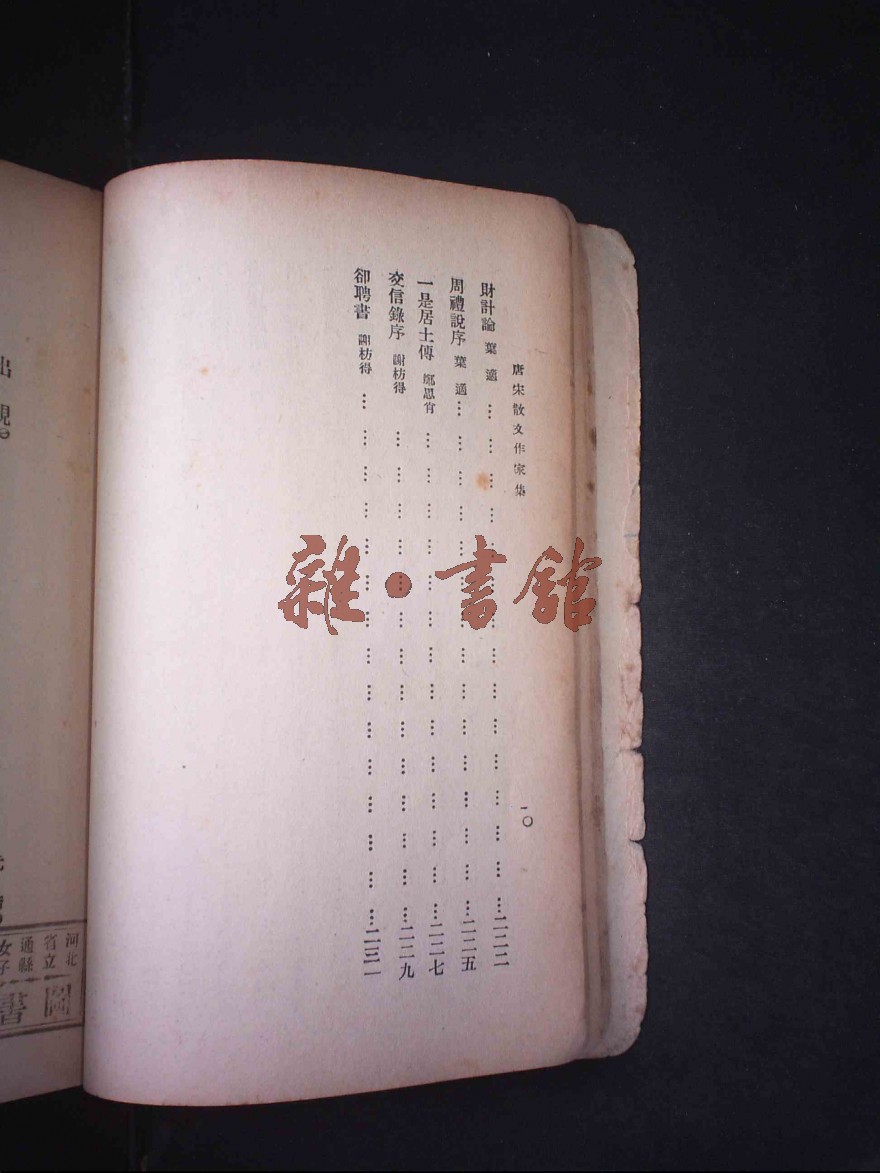 唐宋散文作家集
一〇
財計論 葉適 ……………………………………二二二
周禮說序 葉適 ……………………………………二二五
一是居士傳 鄭思肖 ……………………………………二二七
交信錄序 謝枋得 ……………………………………二二九
卻聘書 謝枋得 ……………………………………二三一
雜·書館
河北
省立
通縣
女子
圖
書